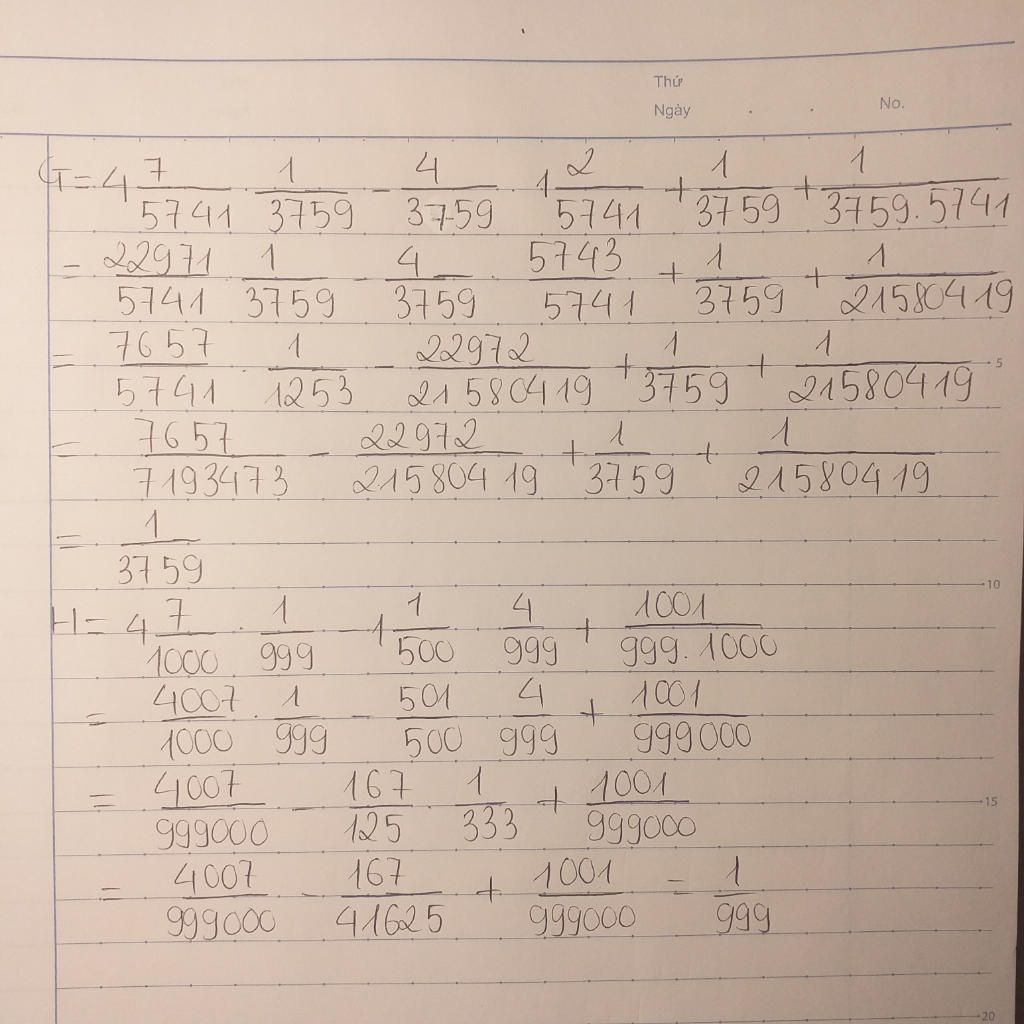 Thứ
Ngày . . No.
G = 4 7/5741 · 1/3759 - 4/3759 · 1 2/5741 + 1/3759 + 1/3759.5741
= 22971/5741 · 1/3759 - 4/3759 · 5743/5741 + 1/3759 + 1/21580419
= 7657/5741 · 1/1253 - 22972/21580419 + 1/3759 + 1/21580419
5
= 7657/7193473 - 22972/21580419 + 1/3759 + 1/21580419
= 1/3759
10
H = 4 7/1000 · 1/999 - 1 1/500 · 4/999 + 1001/999.1000
= 4007/1000 · 1/999 - 501/500 · 4/999 + 1001/999000
= 4007/999000 - 167/125 · 1/333 + 1001/999000
15
= 4007/999000 - 167/41625 + 1001/999000 = 1/999
20